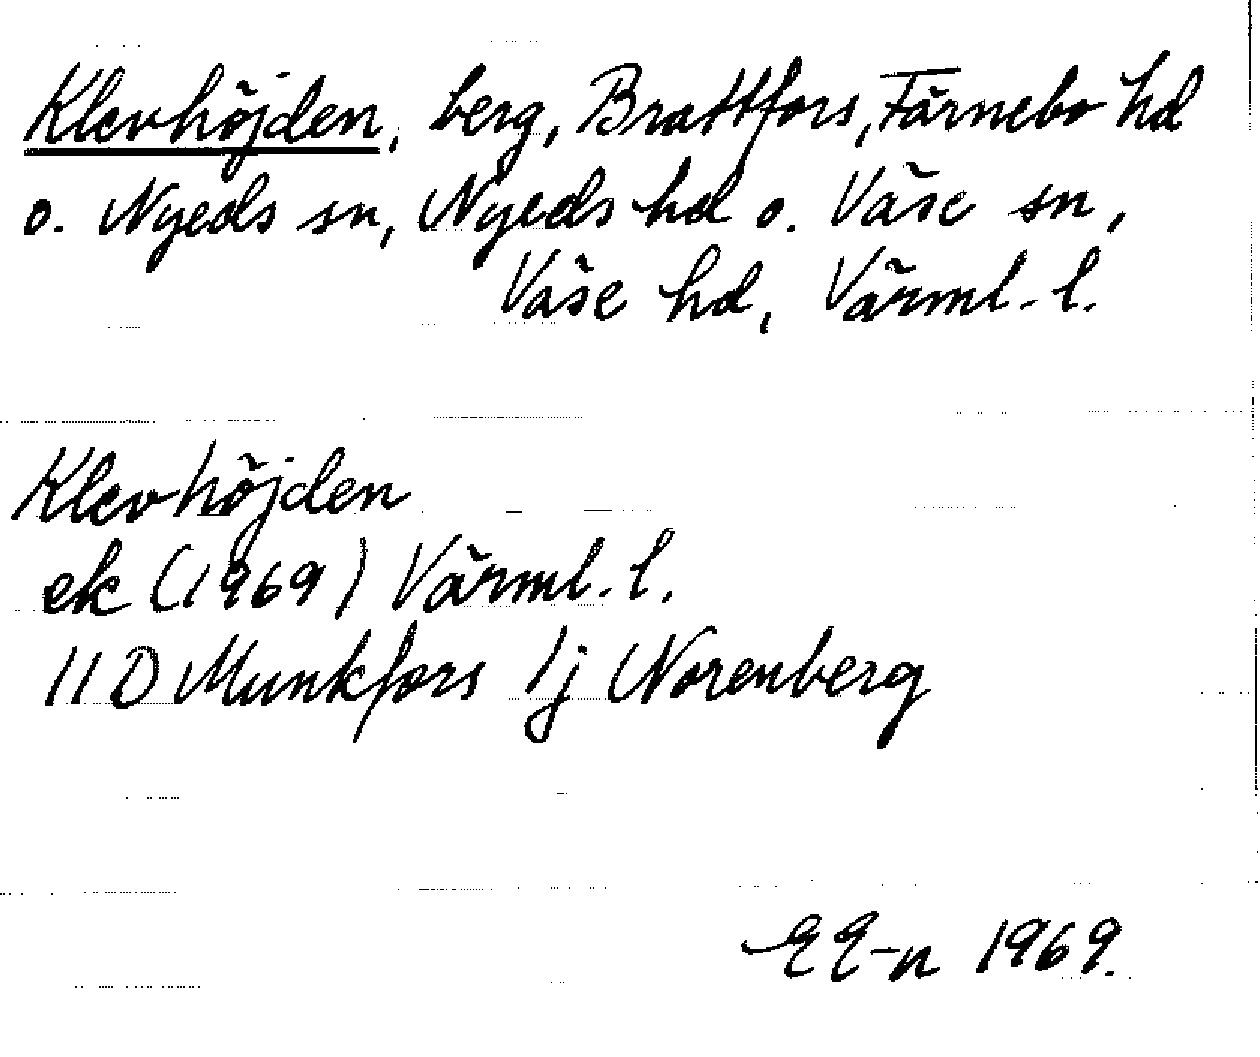 Klevhöjden, berg, Brattfors, Färnebo hd
o. Nyeds sn, Nyeds hd o. Väse sn,
Väse hd, Värml. l.
Klevhöjden
ek (1969) Värml. l.
11 D Munkfors 1j Norenberg
EE-n 1969.